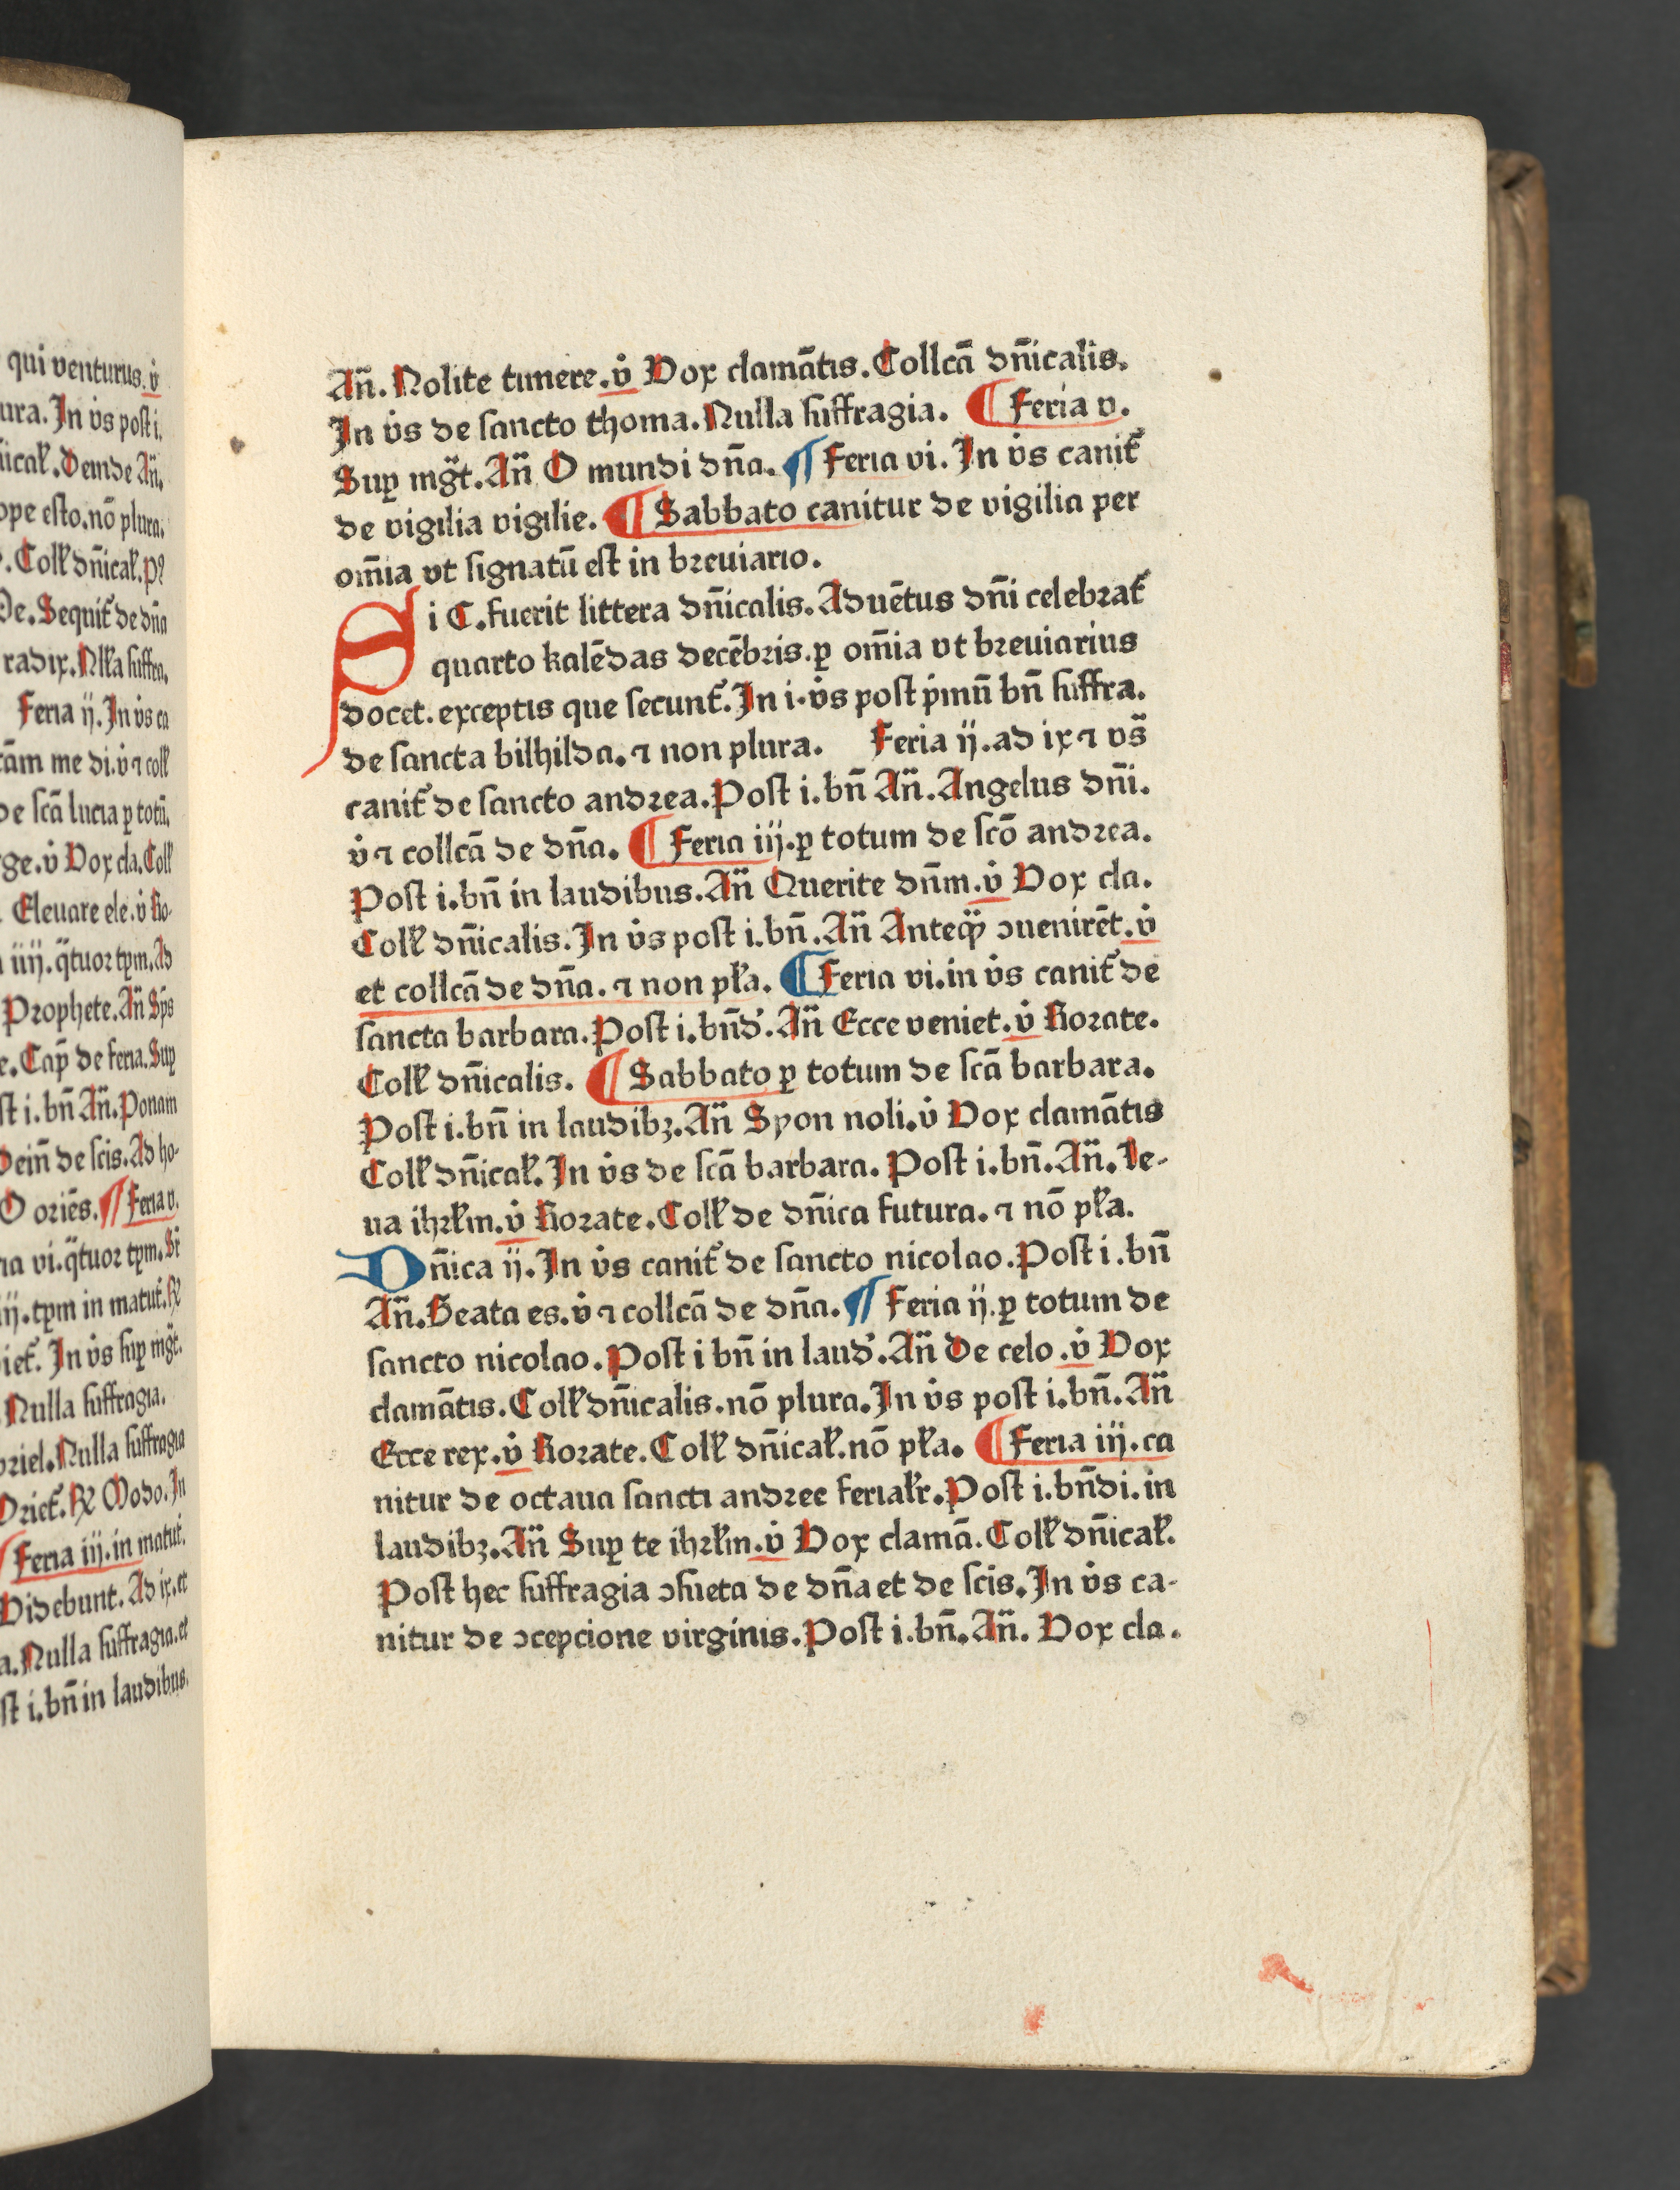 qui venturus. v̇
ura. In v̇s post i.
nical̓. Deinde Añ.
ope esto. nō plura.
. Coll̓ dñical̓. P⁹
De. Sequit̓ de dña
radix. Nl̓la suffra.
Feria ij. In v̇s ca
tām me di. v̇ ⁊ coll̓
de scā lucia ꝑ totū.
ge. v̇ Vox cla. Coll̓
Eleuare ele. v̇ Ro-
iiij. q̈tuor tꝑm. Ad
Prophete. Añ Sp̄s
e. Cap̄ de feria. Suꝑ
st i. bñ Añ. Ponam
Deiñ de scis. Ad ho-
O oriēs. ¶ Feria v.
ia vi. q̈tuor tꝑm. Si
ij. tꝑm in matut̓. ℟
iet̓. In v̇s suꝑ mg̈t.
Nulla suffragia.
briel. Nulla suffragia
Oriet̓. ℟ Modo. In
Feria iij. in matut̓.
Videbunt. Ad ix. et
a. Nulla suffragia. et
st i. bñ in laudibus.
Añ. Nolite timere. v̇ Vox clamātis. Collcā dñicalis.
In v̇s de sancto thoma. Nulla suffragia. ¶ Feria v.
Suꝑ mg̈t. Añ O mundi dña. ¶ Feria vi. In v̇s canit̓
de vigilia vigilie. ¶ Sabbato canitur de vigilia per
om̄ia vt signatū est in breuiario.
Si C. fuerit littera dñicalis. Aduētus dñi celebrat̓
quarto kalēdas decēbris. ꝑ om̄ia vt breuiarius
docet. exceptis que secunt̓. In i. v̇s post p̓mū bñ suffra.
de sancta bilhilda. ⁊ non plura. Feria ij. ad ix ⁊ vs̄
canit̓ de sancto andrea. Post i. bñ Añ. Angelus dñi.
v̇ ⁊ collcā de dña. ¶ Feria iij. ꝑ totum de scō andrea.
Post i. bñ in laudibus. Añ Querite dñm. v̇ Vox cla.
Coll̓ dñicalis. In v̇s post i. bñ. Añ Anteqꝫ ↄuenirēt. v̇
et collcā de dña. ⁊ non pl̓a. ¶ Feria vi. in v̇s canit̓ de
sancta barbara. Post i. bñd̓. Añ Ecce veniet. v̇ Rorate.
Coll̓ dñicalis. ¶ Sabbato ꝑ totum de scā barbara.
Post i. bñ in laudibꝫ. Añ Syon noli. v̇ Vox clamātis
Coll̓ dñical̓. In v̇s de scā barbara. Post i. bñ. Añ. Le-
ua ihrl̓m. v̇ Rorate. Coll̓ de dñica futura. ⁊ nō pl̓a.
Dñica ij. In v̇s canit̓ de sancto nicolao. Post i. bñ
Añ. Beata es. v̇ ⁊ collcā de dña. ¶ Feria ij. ꝑ totum de
sancto nicolao. Post i bñ in laud̓. Añ De celo. v̇ Vox
clamātis. Coll̓ dñicalis. nō plura. In v̇s post i. bñ. Añ
Ecce rex. v̇ Rorate. Coll̓ dñical̓. nō pl̓a. ¶ Feria iij. ca
nitur de octaua sancti andree ferial̓r. Post i. bñdi. in
laudibꝫ. Añ Suꝑ te ihrl̓m. v̇ Vox clamā. Coll̓ dñical̓.
Post hec suffragia ↄsueta de dña et de scis. In v̇s ca-
nitur de ↄcepcione virginis. Post i. bñ. Añ. Vox cla.